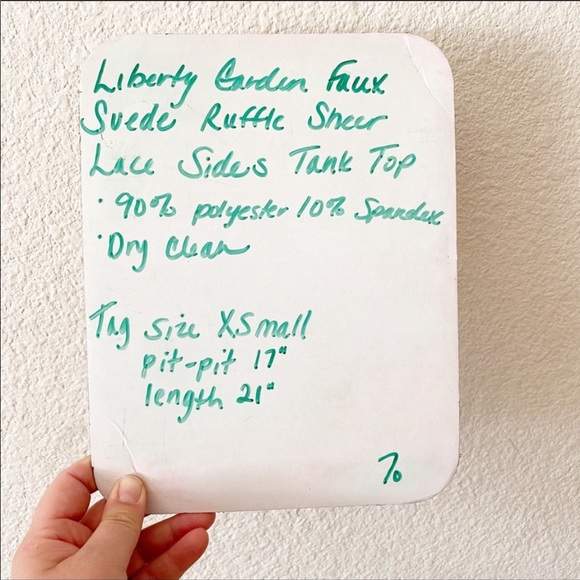 Liberty Garden Faux
Suede Ruffle Sheer
Lace Sides Tank Top
• 90% polyester 10% Spandex
• Dry Clean
Tag size XSmall
pit-pit 17"
length 21"